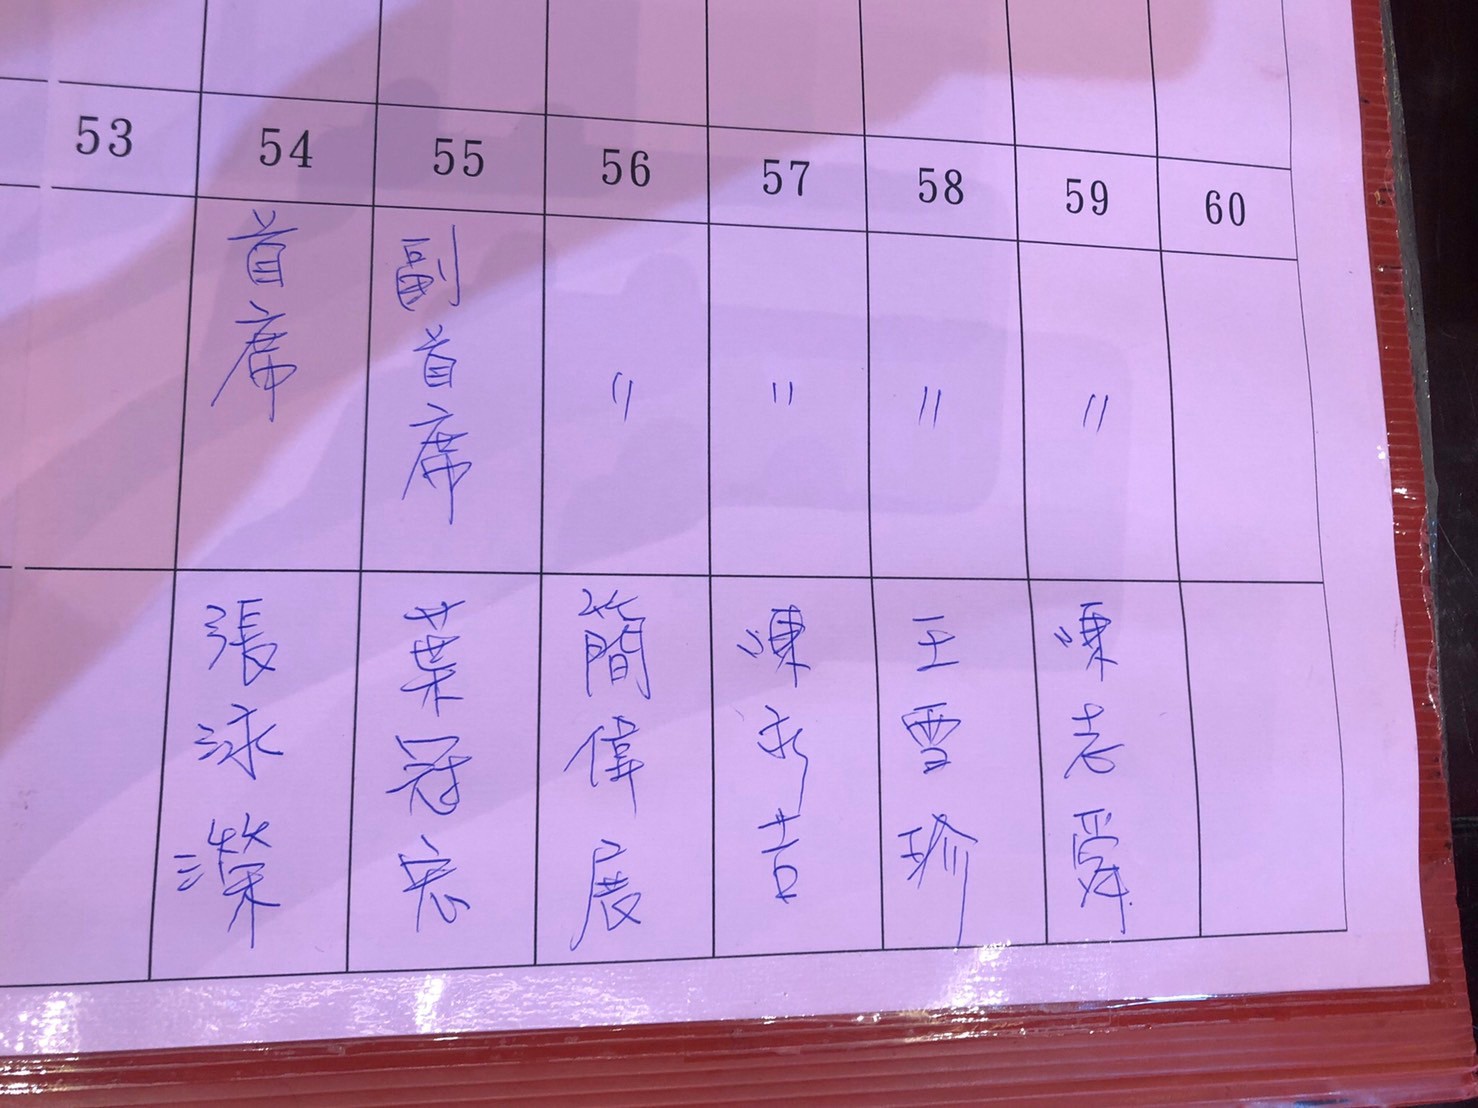 53 54 55 56 57 58 59 60
首席
副首席
〃
〃
〃
〃
張泳濴
葉冠宏
簡偉展
陳永吉
王雪珍
陳志舜